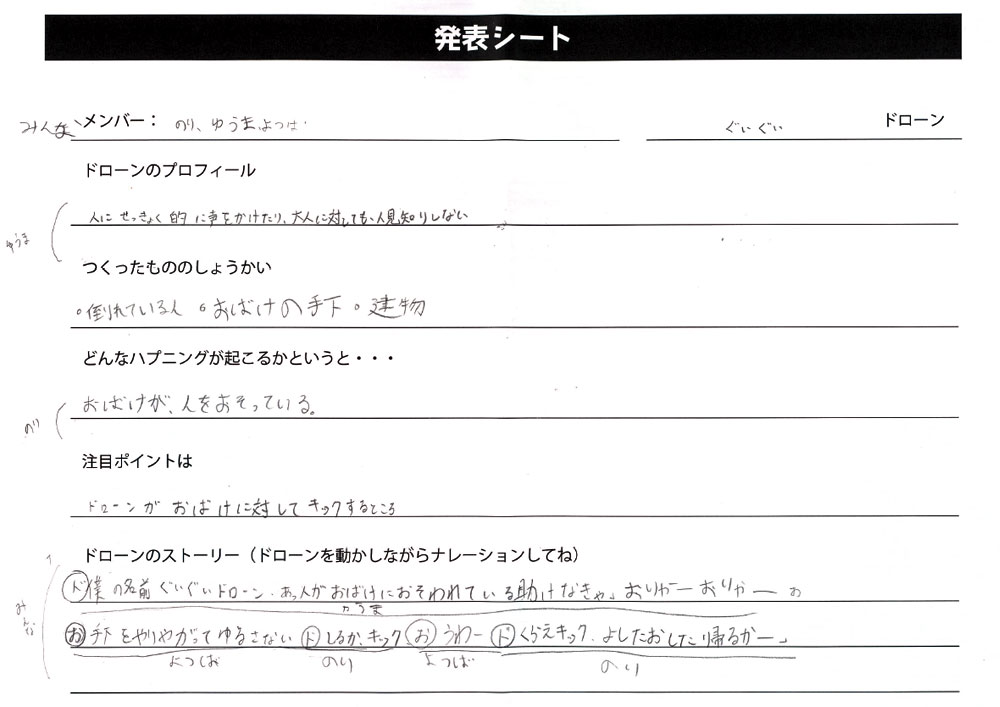 発表シート
みんな メンバー： のり、ゆうま よつば ぐいぐい ドローン
ドローンのプロフィール
人に せっきょく的に声をかけたり、大人に対しても、人見知りしない
ゆうま
つくったもののしょうかい
・倒れている人 ・おばけの手下 ・建物
どんなハプニングが起こるかというと・・・
おばけが、人をおそっている。
のり
注目ポイントは
ドローンが おばけに対して キックするところ
ドローンのストーリー（ドローンを動かしながらナレーションしてね）
ド 僕の名前 ぐいぐいドローン、あっ人がおばけにおそわれている助けなきゃ、おりゃー おりゃー
ゆうま
みんな
お 手下をやりやがって ゆるさない ド しるか、キック お うわー ド くらえキック、よしたおした 帰るかー」
よつば のり よつば のり